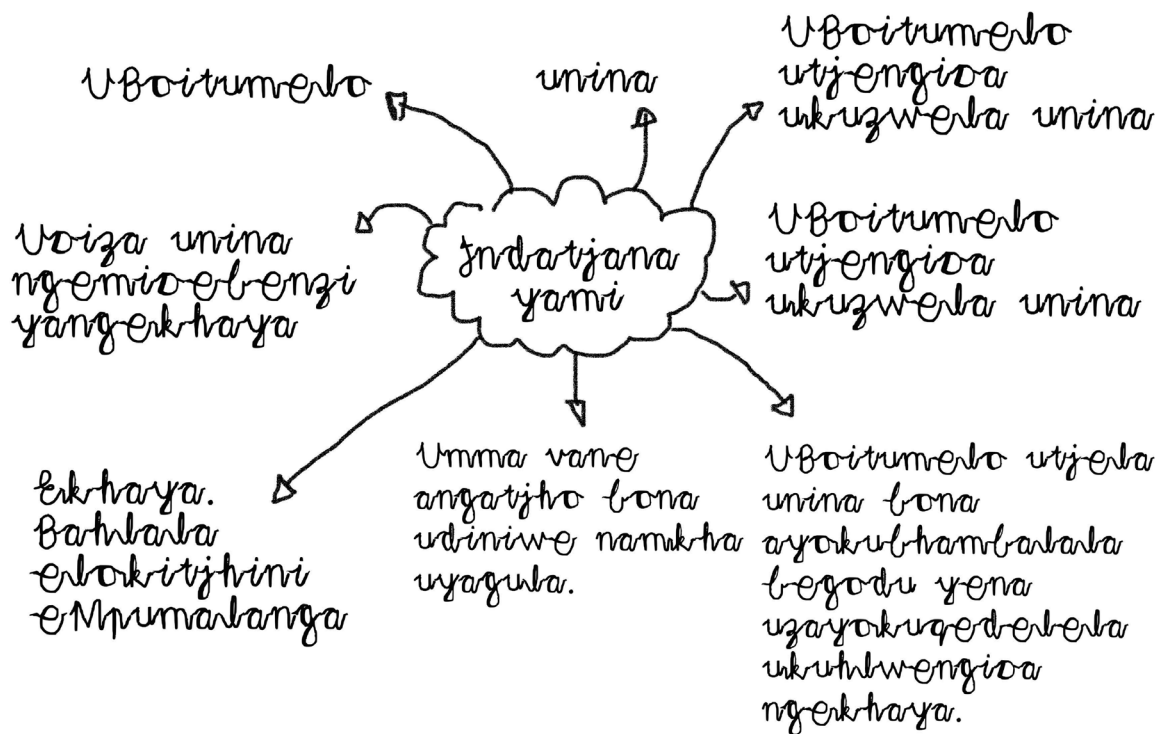 UBoitumelo
unina
UBoitumelo
utjengisa
ukuzwela unina
Usiza unina
ngemisebenzi
yangekhaya
Indatjana
yami
UBoitumelo
utjengisa
ukuzwela unina
Ekhaya.
Bahlala
elokitjhini
eMpumalanga
Umma vane
angatjho bona
udiniwe namkha
uyagula.
UBoitumelo utjela
unina bona
ayokubhambalala
begodu yena
uzayokuqedelela
ukuhlwengisa
ngekhaya.